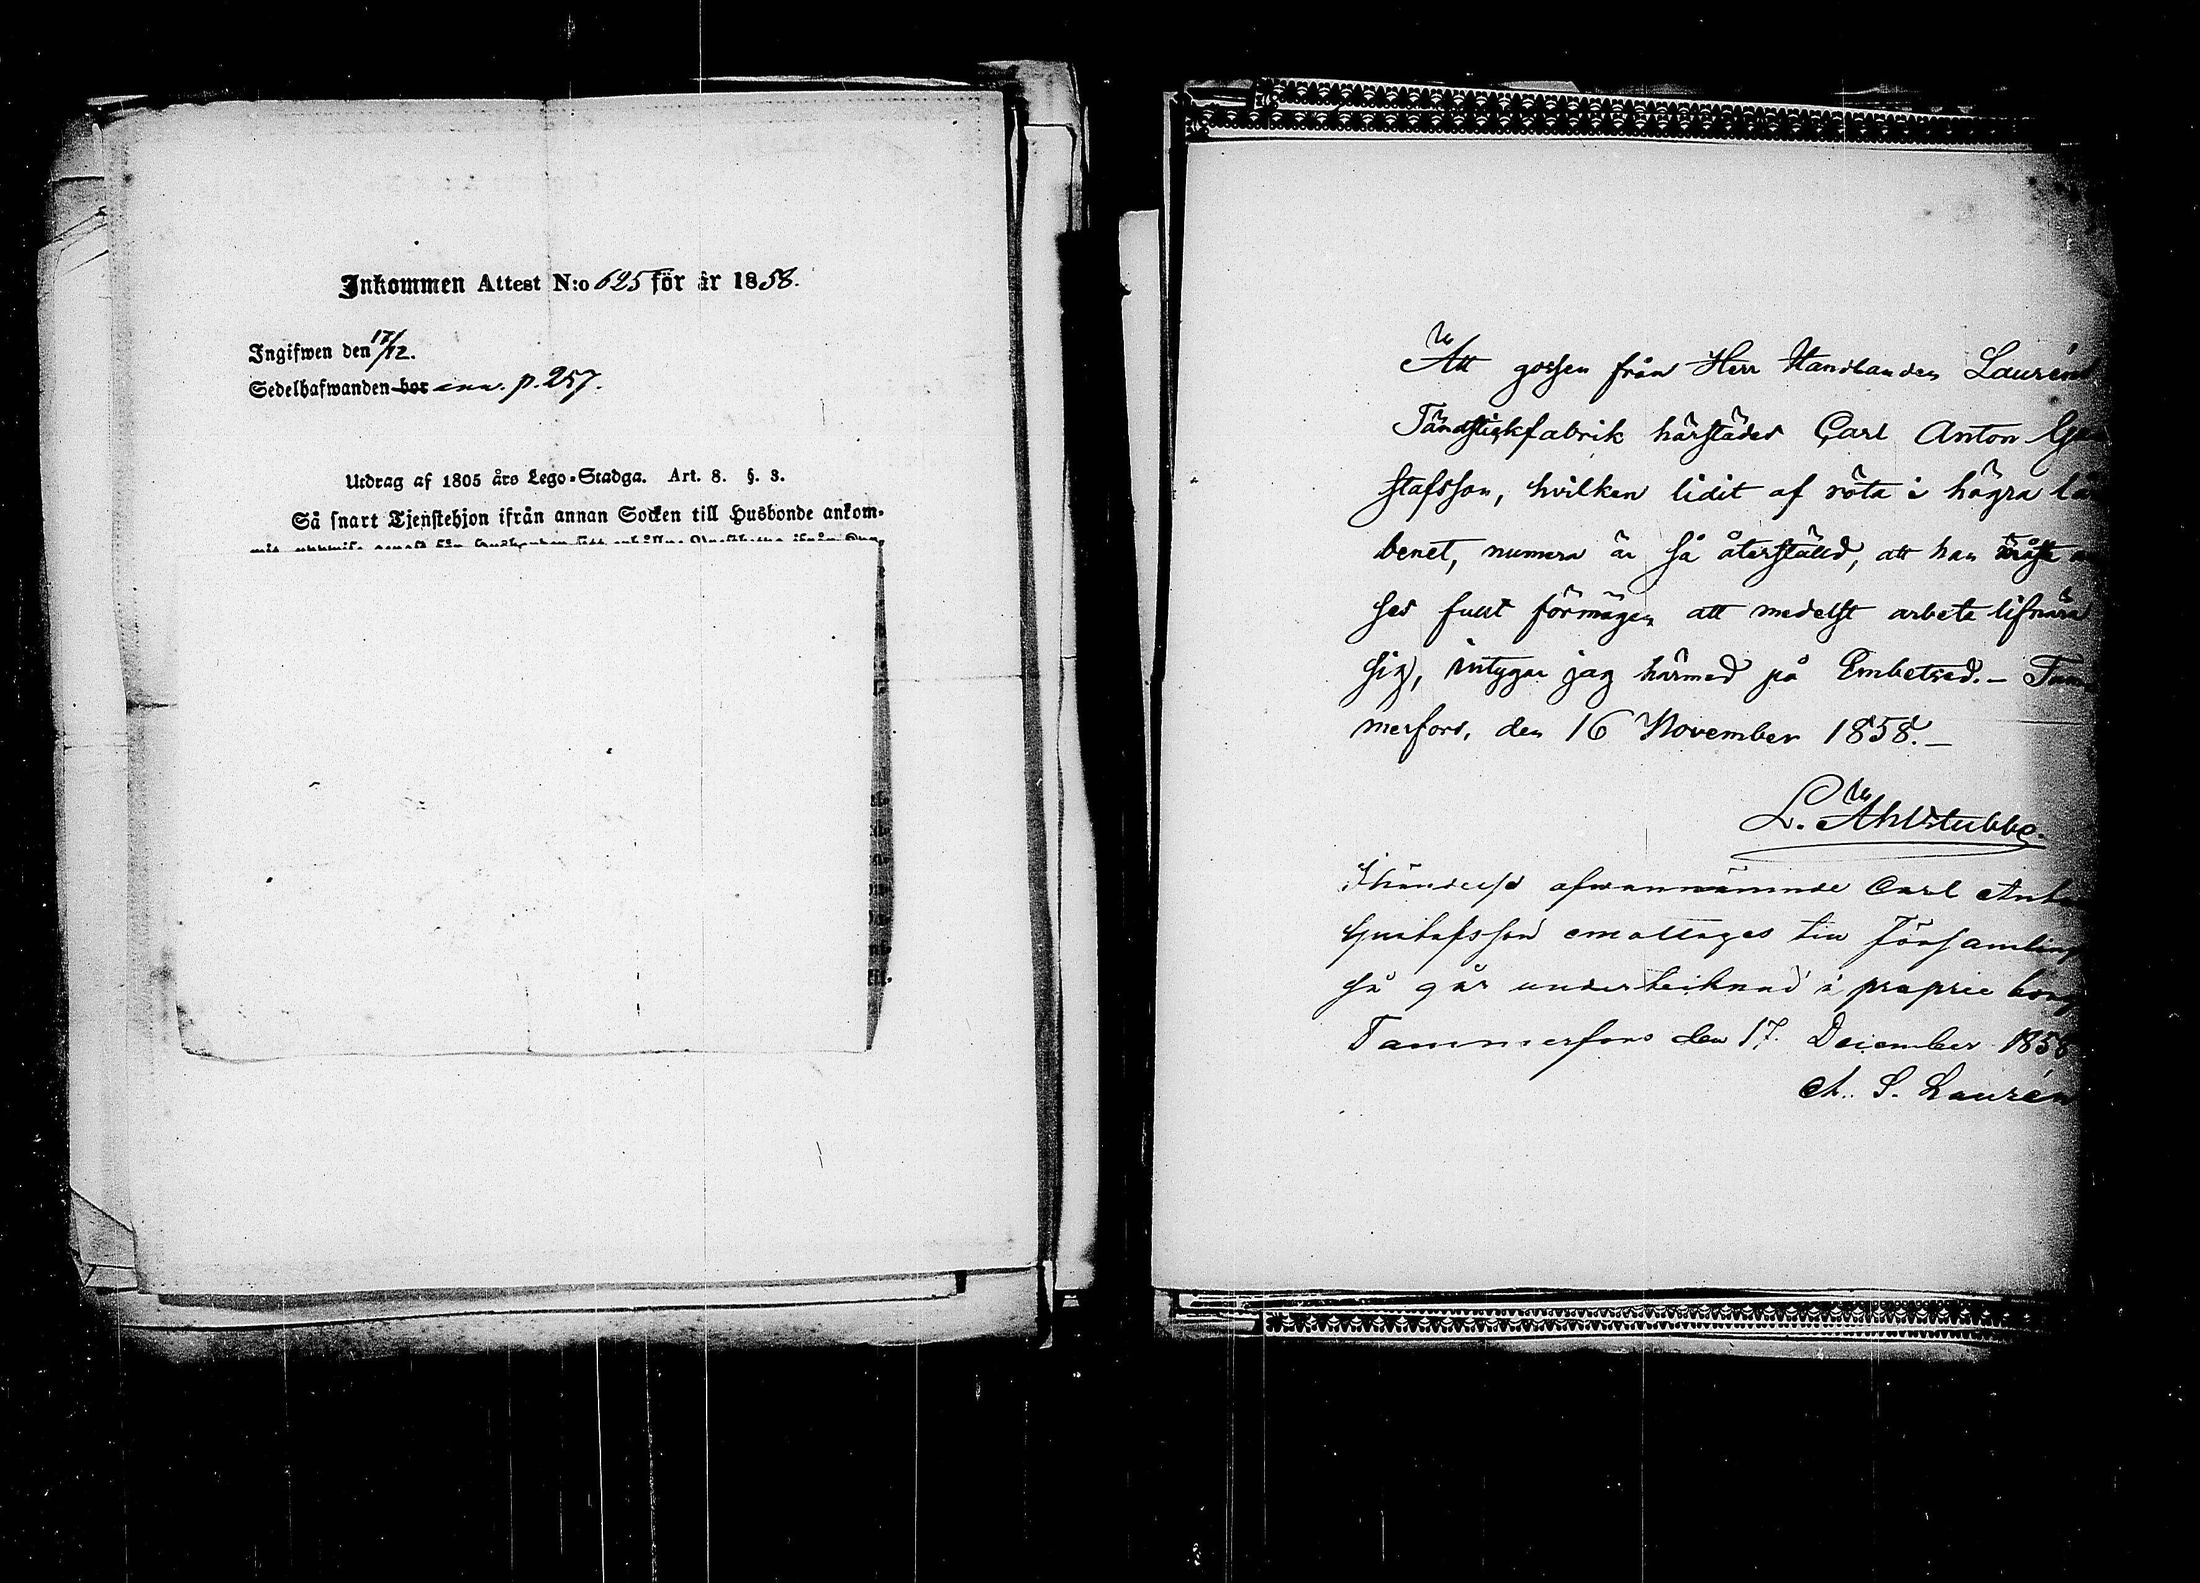 Inkommen Attest N:o 625 för år 1858.
Ingifwen den 17/12.
Sedelhafwanden bor p. 257.
Utdrag af 1805 års Lego-Stadga. Art. 8. §. 3.
Så snart Tjenstehjon ifrån annan Socken till Husbonde ankom-
Att gossen från Herr Handlanden Lauréns
Tändstickfabrik härstädes Carl Anton Gu
stafsson, hvilken lidit af röta i högra lår
benet, numera är så återstäld, att han måste an
ses fullt förmögen att medelst arbete lifnära
sig, intygar jag härmed på Embetsed.- Tam
merfors, den 16 November 1858.-
L. Ahlstubbe.
I händelse ofvannämnde Carl Anton
Gustafsson emottages till Församling
så går undertecknad i proprie borg
Tammerfors den 17. December 1858
A. S. Laurén